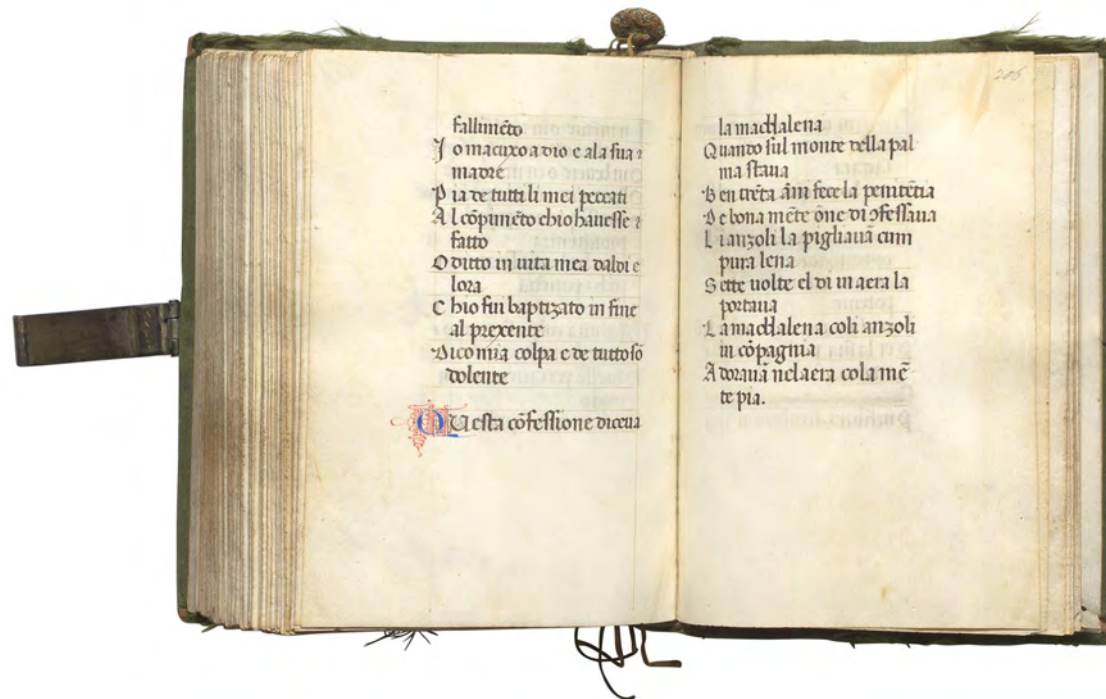 fallimēto
Io macuxo a dio e ala sua
madre
Pia de tutti li mei peccati
Al cōpimēto chio hauesse
fatto
O ditto in uita mea dalbi e
lora
Chio fui baptizato in fine
al prexente
Dico mia colpa e de tutto sō
dolente
QVesta cōfessione diceua
206
la maddalena
Quando sul monte della pal
ma staua
Ben trēta āni fece la penitētia
De bona mēte ōne di ɔfessaua
Li anzoli la pigliauā cum
pura lena
Sette uolte el di in aera la
portaua
La maddalena coli anzoli
in cōpagnia
Adorauā nelaera cola mē
te pia.